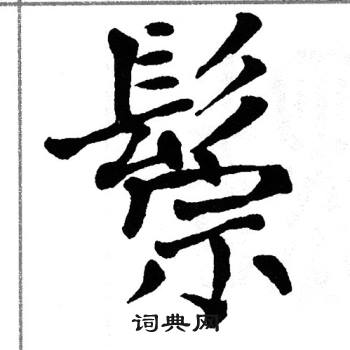 鬃
词典网